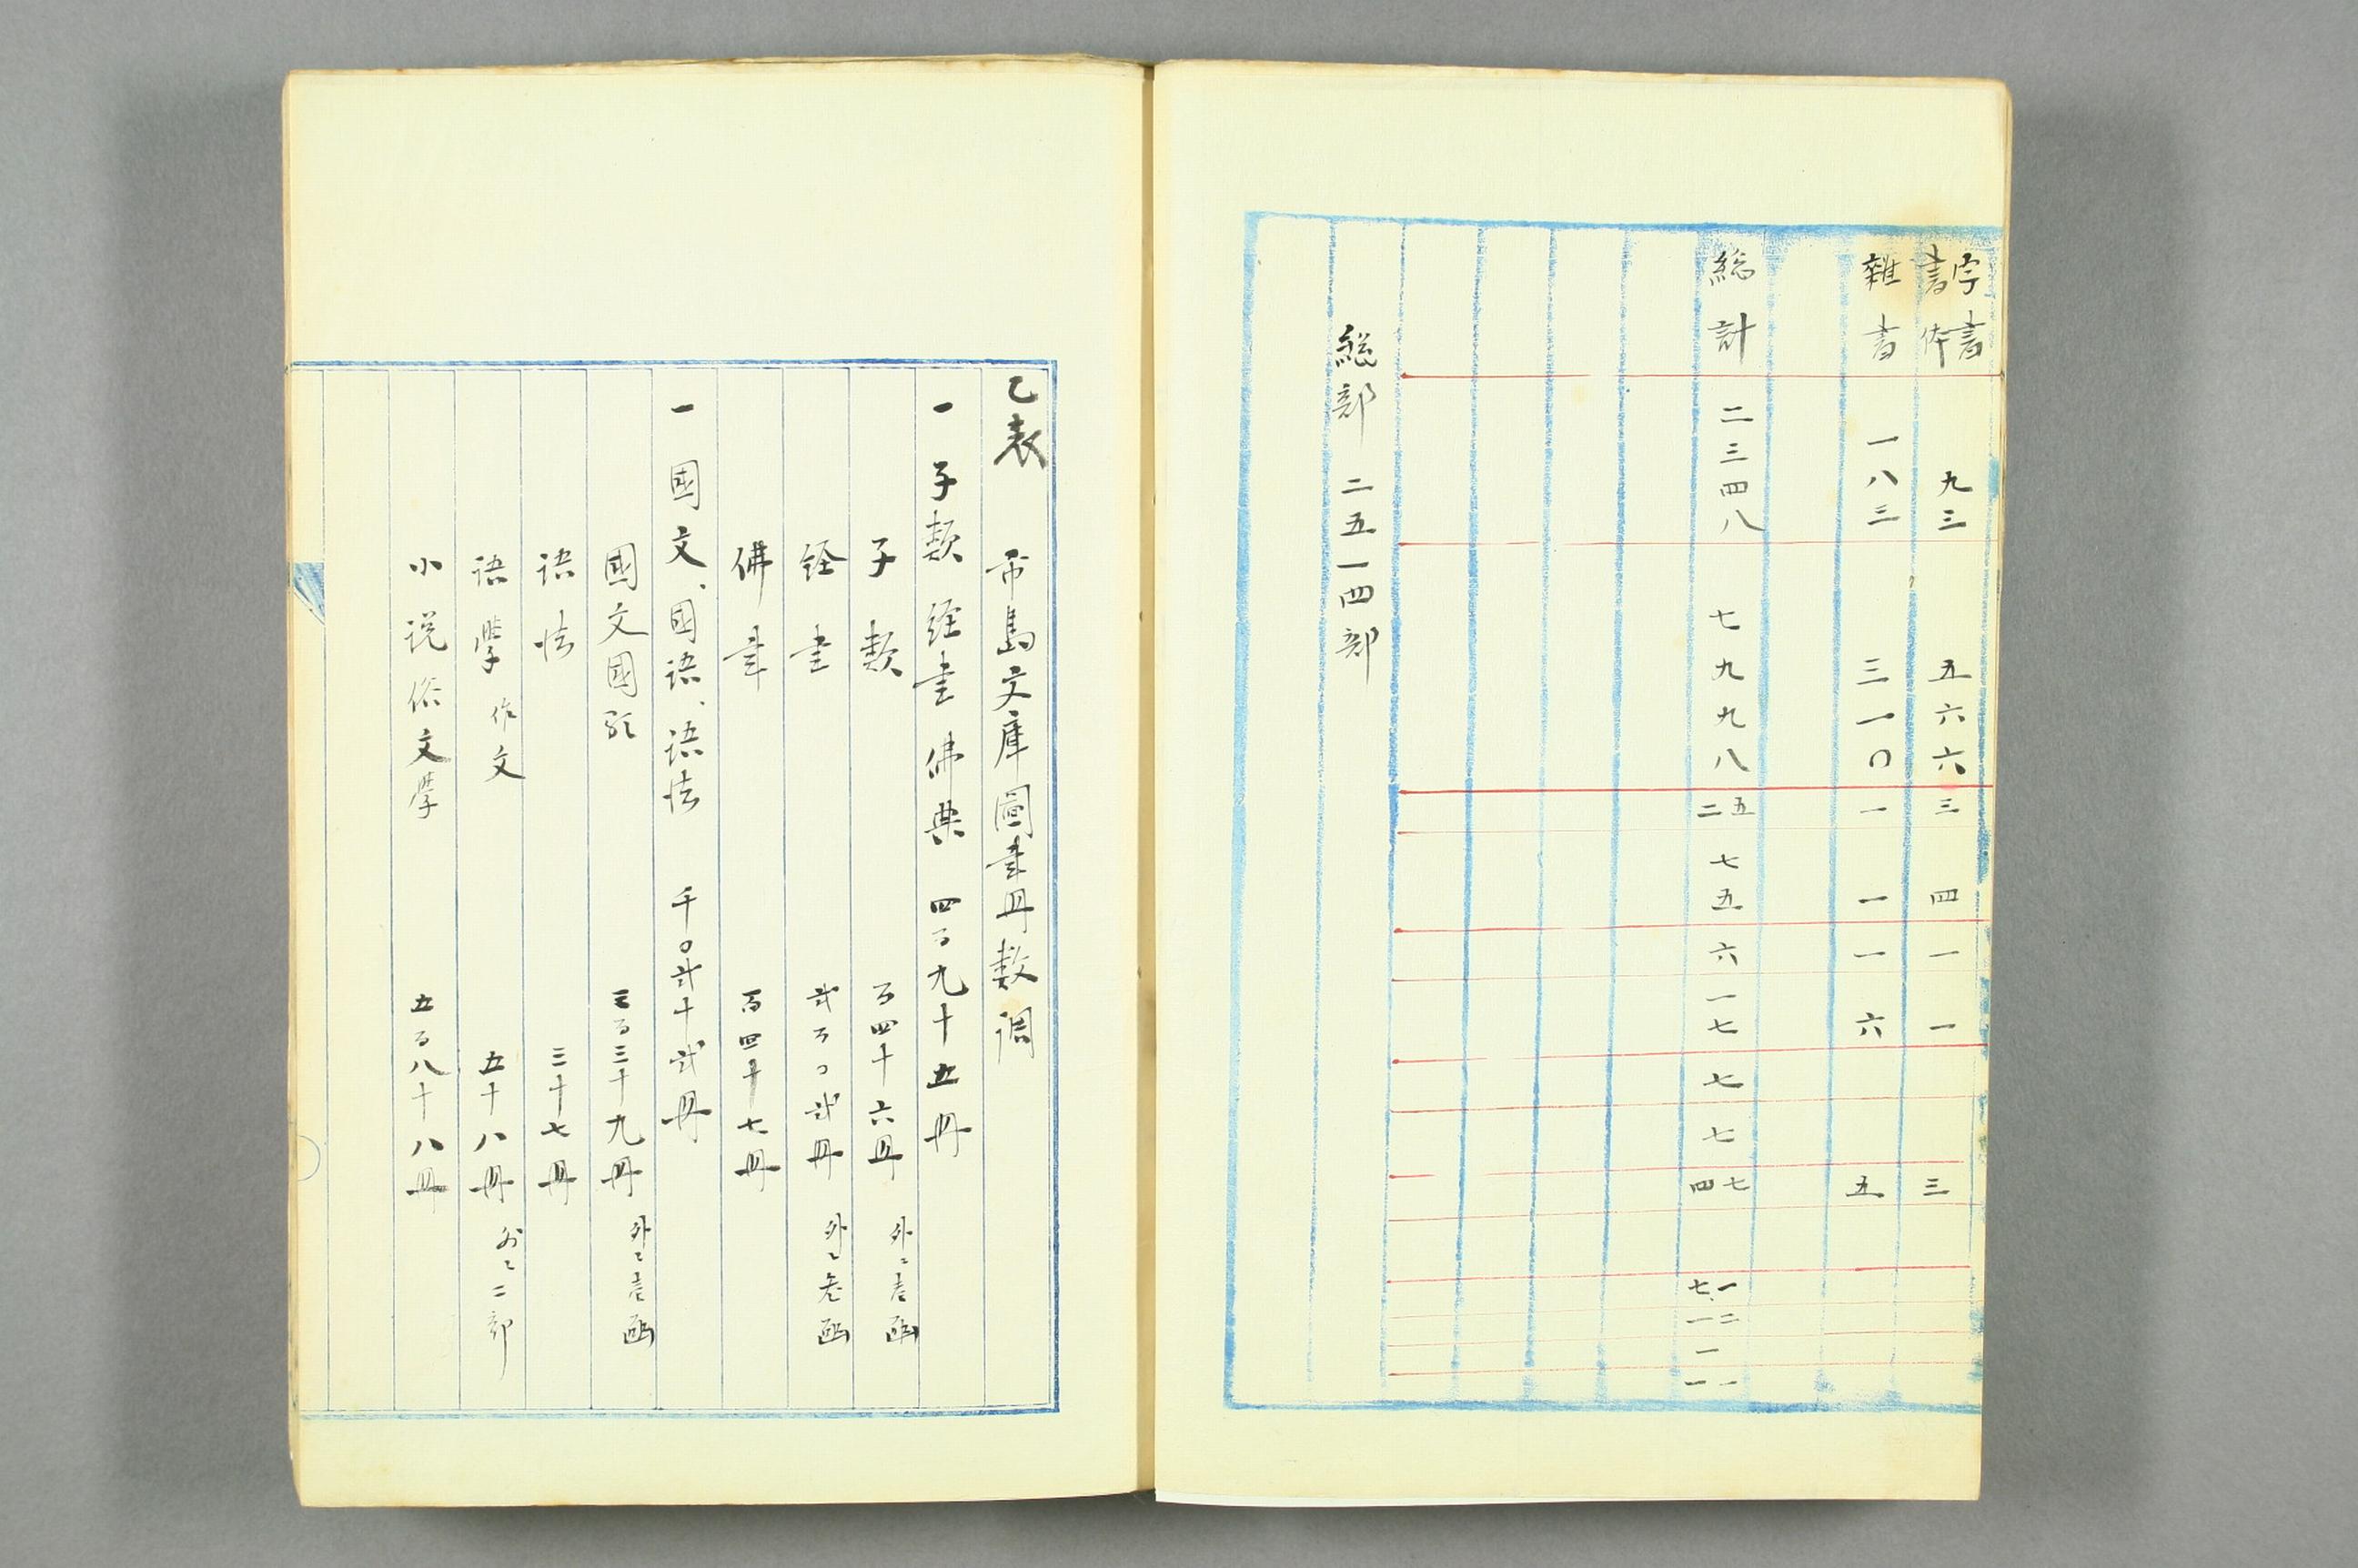 字書
書体 九三 五六六 三 四 一 一 三
雑書 一八三 三一〇 一 一 一 六 五
総計 二三四八 七九九八 五二 七五 六 一七 七 七 七四 一七 二一 一 一一
総部 二五一四部
乙表 市島文庫圖書冊数調
一 子類 経書 佛典 四百九十五冊
子類 百四十六冊 外ニ壱函
経書 弐百〇弐冊 外ニ参函
佛書 百四十七冊
一 國文、國語、語法 千〇弐十弐冊
國文國語 三百三十九冊 外ニ壱函
語法 三十七冊
語學 作文 五十八冊 外ニ二部
小説俗文学 五百八十八冊